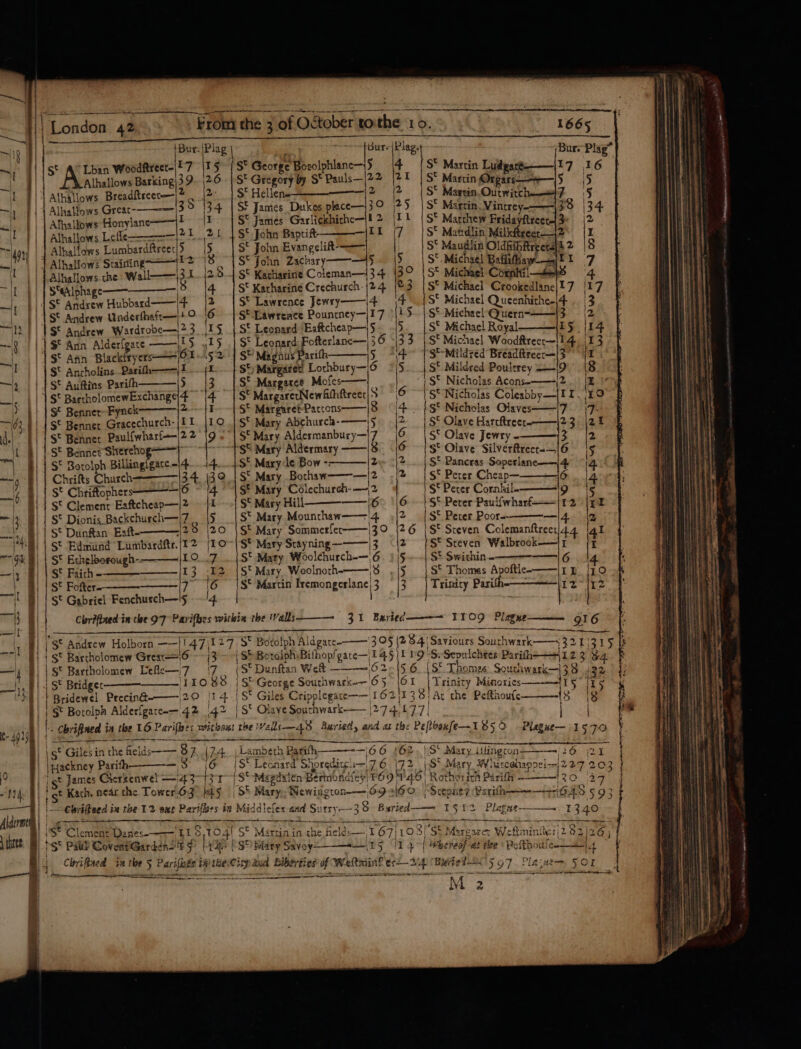 London 42 From the 3 of October to the 10. 1665
Bur. Plag Bur. Plag. Bur. Plag
St ALban Woodſtreet— 17 15
Alhallows Barking 39 26
Alhallows Breadſtreet— 2 2
Alhallows Great— 38 34
Alhallows Honylane— 1 1
Alhallows Leſſe— 21 21
Alhallows Lumbardſtreet 5 5
Alhallows Staining— 12 8
Alhallows the Wall— 31 28
St Alphage— 8 4
St Andrew Hubbard— 4 2
St Andrew Underſhaft— 10 6
St Andrew Wardrobe— 23 15
St Ann Alderſgate— 15 15
St Ann Blackfryers— 61 52
St Ancholins Pariſh— 1 1
St Auſtins Pariſh— 5 3
St Bartholomew Exchange 4 4
St Bennet Fynck— 2 1
St Bennet Gracechurch- 11 10
St Bennet Paulſwharf— 22 9
St Bennet Sherehog—
St Botolph Billingſgate— 4 4
Chriſts Church— 34 30
St Chriſtophers— 6 4
St Clement Eaſtcheap— 2 1
St Dionis Backchurch— 7 5
St Dunſtan Eaſt— 28 20
St Edmund Lumbardſtr. 12 10
St Ethelborough— 10 7
St Faith— 13 12
St Foſter— 7 6
St Gabriel Fenchurch— 5 4
St George Botolphlane— 5 4
St Gregory by St Pauls— 22 21
St Hellens— 2 2
St James Dukes place— 30 25
St James Garlickhithe— 12 11
St John Baptiſt— 11 7
St John Evangeliſt—
St John Zachary— 5 5
St Katharine Coleman— 34 30
St Katharine Crechurch- 24 23
St Lawrence Jewry— 4 4
St Lawrence Pountney— 17 15
St Leonard Eaſtcheap— 5 5
St Leonard Foſterlane— 36 33
St Magnus Pariſh— 5 4
St Margaret Lothbury— 6 5
St Margaret Moſes—
St Margaret Newfiſhſtreet 8 6
St Margaret Pattons— 8 4
St Mary Abchurch— 5 2
St Mary Aldermanbury— 7 6
St Mary Aldermary— 8 6
St Mary le Bow— 2 2
St Mary Bothaw— 2 2
St Mary Colechurch— 2
St Mary Hill— 6 6
St Mary Mounthaw— 4 2
St Mary Sommerſet— 30 26
St Mary Stayning— 3 2
St Mary Woolchurch— 6 5
St Mary Woolnoth— 8 5
St Martin Iremongerlane 3 3
St Martin Ludgate— 17 16
St Martin Orgars— 5 5
St Martin Outwitch— 7 5
St Martin Vintrey— 38 34
St Matthew Fridayſtreet— 3 2
St Maudlin Milkſtreet— 2 1
St Maudlin Oldfiſhſtreet 12 8
St Michael Baſſiſhaw— 11 7
St Michael Cornhil— 8 4
St Michael Crookedlane 17 17
St Michael Queenhithe— 4 3
St Michael Quern— 3 2
St Michael Royal— 15 14
St Michael Woodſtreet— 14 13
St Mildred Breadſtreet— 3 1
St Mildred Poultrey— 9 8
St Nicholas Acons— 2 1
St Nicholas Coleabby— 11 10
St Nicholas Olaves— 7 7
St Olave Hartſtreet— 23 21
St Olave Jewry— 3 2
St Olave Silverſtreet— 6 5
St Pancras Soperlane— 4 4
St Peter Cheap— 6 4
St Peter Cornhil— 9 5
St Peter Paulſwharf— 12 11
St Peter Poor— 4 2
St Steven Colemanſtreet 44 41
St Steven Walbrook— 1 1
St Swithin— 6 4
St Thomas Apoſtle— 11 10
Trinity Pariſh— 12 12
Chriſtned in the 97 Pariſhes within the Walls— 31 Buried— 1109 Plague— 916
St Andrew Holborn— 147 127
St Bartholomew Great— 6 3
St Bartholomew Leſſe— 7 7
St Bridget— 110 88
Bridewel Precinct— 20 14
St Botolph Alderſgate— 42 42
St Botolph Aldgate— 305 284
St Botolph Biſhopſgate— 145 119
St Dunſtan Weſt— 62 56
St George Southwark— 65 61
St Giles Cripplegate— 162 138
St Olave Southwark— 274 177
Saviours Southwark— 321 315
S. Sepulchres Pariſh— 123 84
St Thomas Southwark— 38 32
Trinity Minories— 15 15
At the Peſthouſe— 8 8
Chriſtned in the 16 Pariſhes without the Walls—48 Buried, and at the Peſthouſe—1850 Plague— 1570
St Giles in the fields— 87 74
Hackney Pariſh— 8 6
St James Clerkenwel— 43 31
St Kath. near the Tower 63 45
Lambeth Pariſh— 66 62
St Leonard Shoreditch— 76 72
St Magdalen Bermondſey 169 146
St Mary Newington— 69 60
St Mary Iſlington— 26 21
St Mary Whitechappel— 227 203
Rotherith Pariſh— 30 27
Stepney Pariſh— 648 593
Chriſtned in the 12 out Pariſhes in Middleſex and Surry—38 Buried— 1512 Plague— 1340
St Clement Danes— 118 104
St Paul Covent Garden
St Martin in the fields— 167 108
St Mary Savoy— 15 14
St Margaret Weſtminſter 282 26
Whereof at the Peſthouſe— 4
Chriſtned in the 5 Pariſhes in the City and Liberties of Weſtminſter—24 Buried— 597 Plague— 501
M 2